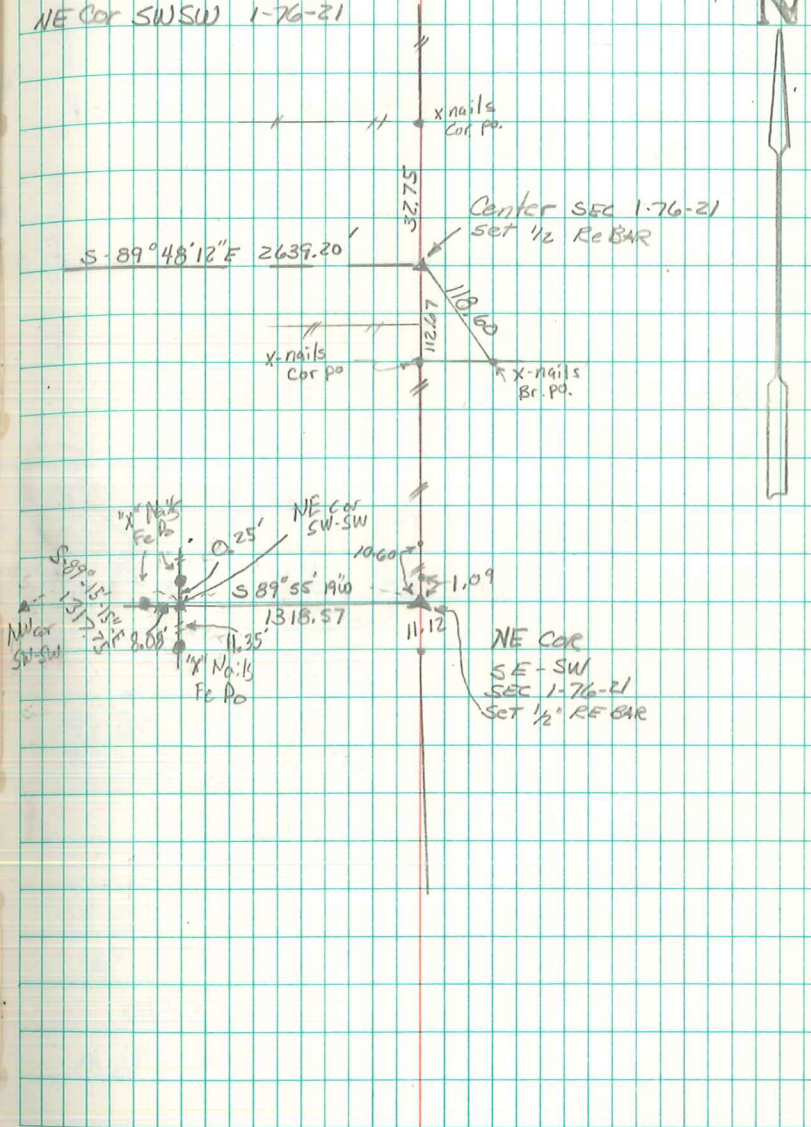 NE Cor SWSW 1-76-21
N
x nails
Cor. po.
32.75
Center SEC 1-76-21
set 1/2 ReBAR
S-89°48'12"E 2639.20'
118.60
112.67
x-nails
Cor po
x-nails
Br. po.
"X" Nails
Fe Po
0.25'
NE Cor
SW-SW
10.60
1.09
S 89° 55' 19"
1318.57
1317.75
NW cor
SW-SW
8.08'
11.35'
11.12
"X" Nails
Fe Po
NE COR
SE-SW
SEC 1-76-21
SET 1/2" RE BAR